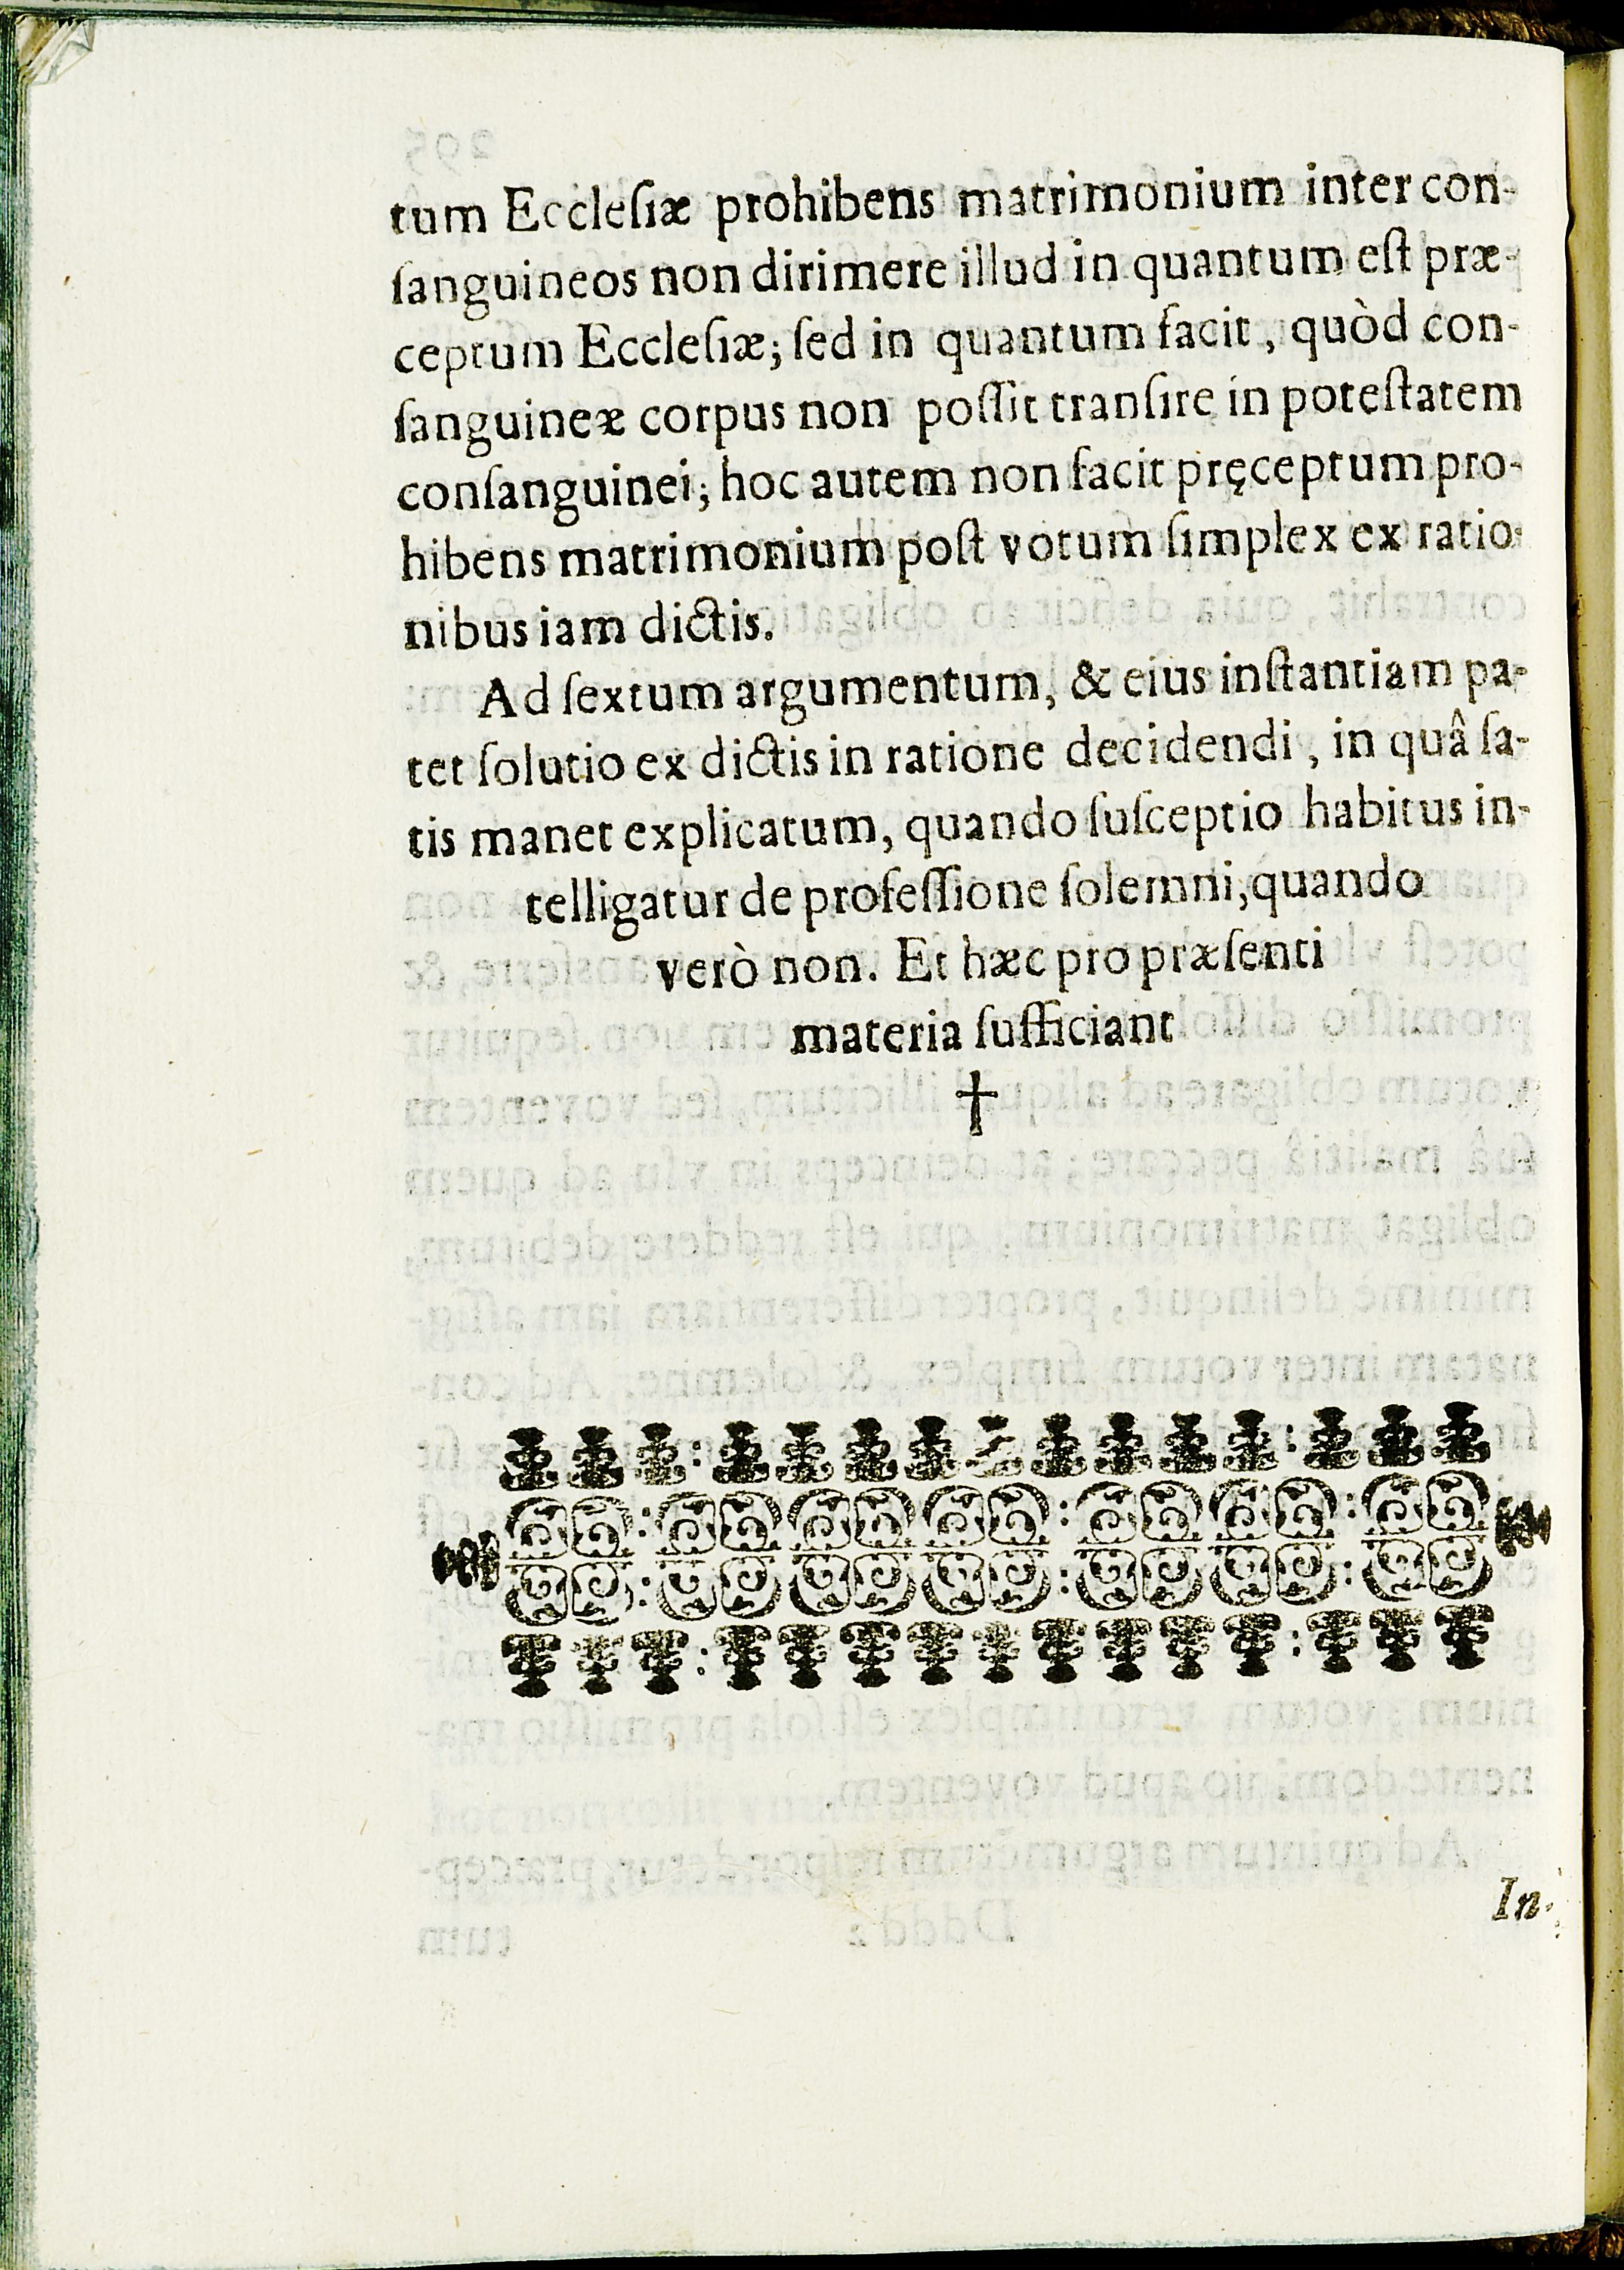 tum Eccleſiæ prohibens matrimonium inter con-
ſanguineos non dirimere illud in quantum eſt præ-
ceptum Eccleſiæ; ſed in quantum facit, quòd con-
ſanguineæ corpus non poſſit tranſire in poteſtatem
conſanguinei; hoc autem non facit pręceptum pro-
hibens matrimonium poſt votum ſimplex ex ratio-
nibus iam dictis.
Ad ſextum argumentum, & eius inſtantiam pa-
tet ſolutio ex dictis in ratione decidendi, in quâ ſa-
tis manet explicatum, quando ſuſceptio habitus in-
telligatur de profeſſione ſolemni, quando
verò non. Et hæc pro præſenti
materia ſufficiant
†
In-